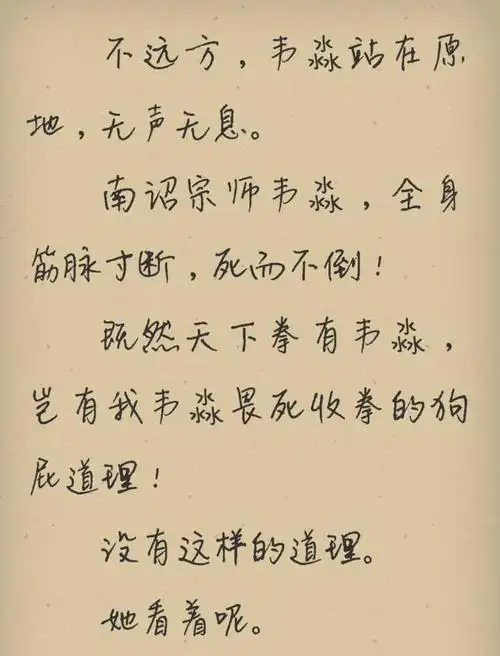 不远方，韦淼站在原
地，无声无息。
南诏宗师韦淼，全身
筋脉寸断，死而不倒！
既然天下拳有韦淼，
岂有我韦淼畏死收拳的狗
屁道理！
没有这样的道理。
她看着呢。